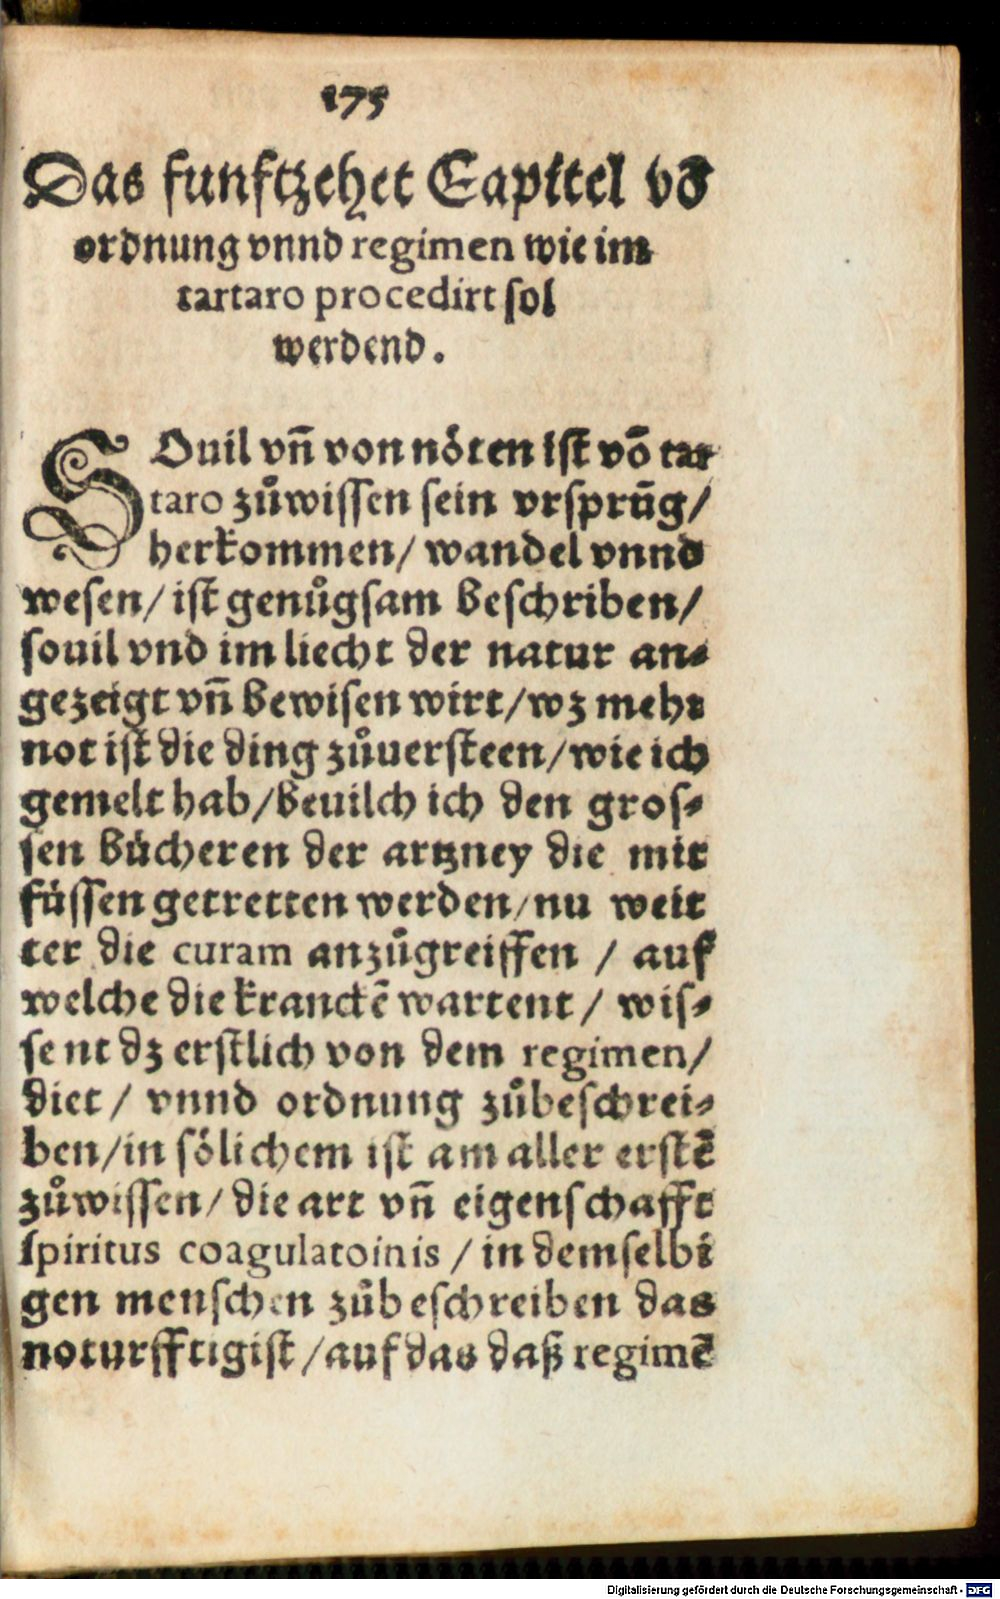 175
Das funftzehet Capittel vō
ordnung vnnd regimen wie im
tartaro procedirt sol
werdend.
SOuil vn̄ von nöten ist vō tar
taro zůwissen sein vrsprūg/
herkommen/ wandel vnnd
wesen/ ist genůgsam beschriben/
souil vnd im liecht der natur an-
gezeigt vn̄ bewisen wirt/wz mehr
not ist die ding zůuersteen/wie ich
gemelt hab/beuilch ich den gros-
sen bücheren der artzney die mit
füssen getretten werden/nu weit
ter die curam anzůgreiffen / auf
welche die kranckē wartent/ wis-
se nt dz erstlich von dem regimen/
diet/ vnnd ordnung zůbeschrei-
ben/in sölichem ist am aller erstē
zůwissen/ die art vn̄ eigenschafft
spiritus coagulatoinis / in demselbi
gen menschen zůbeschreiben das
noturfftigist/auf das daß regimē
Digitalisierung gefördert durch die Deutsche Forschungsgemeinschaft - DFG